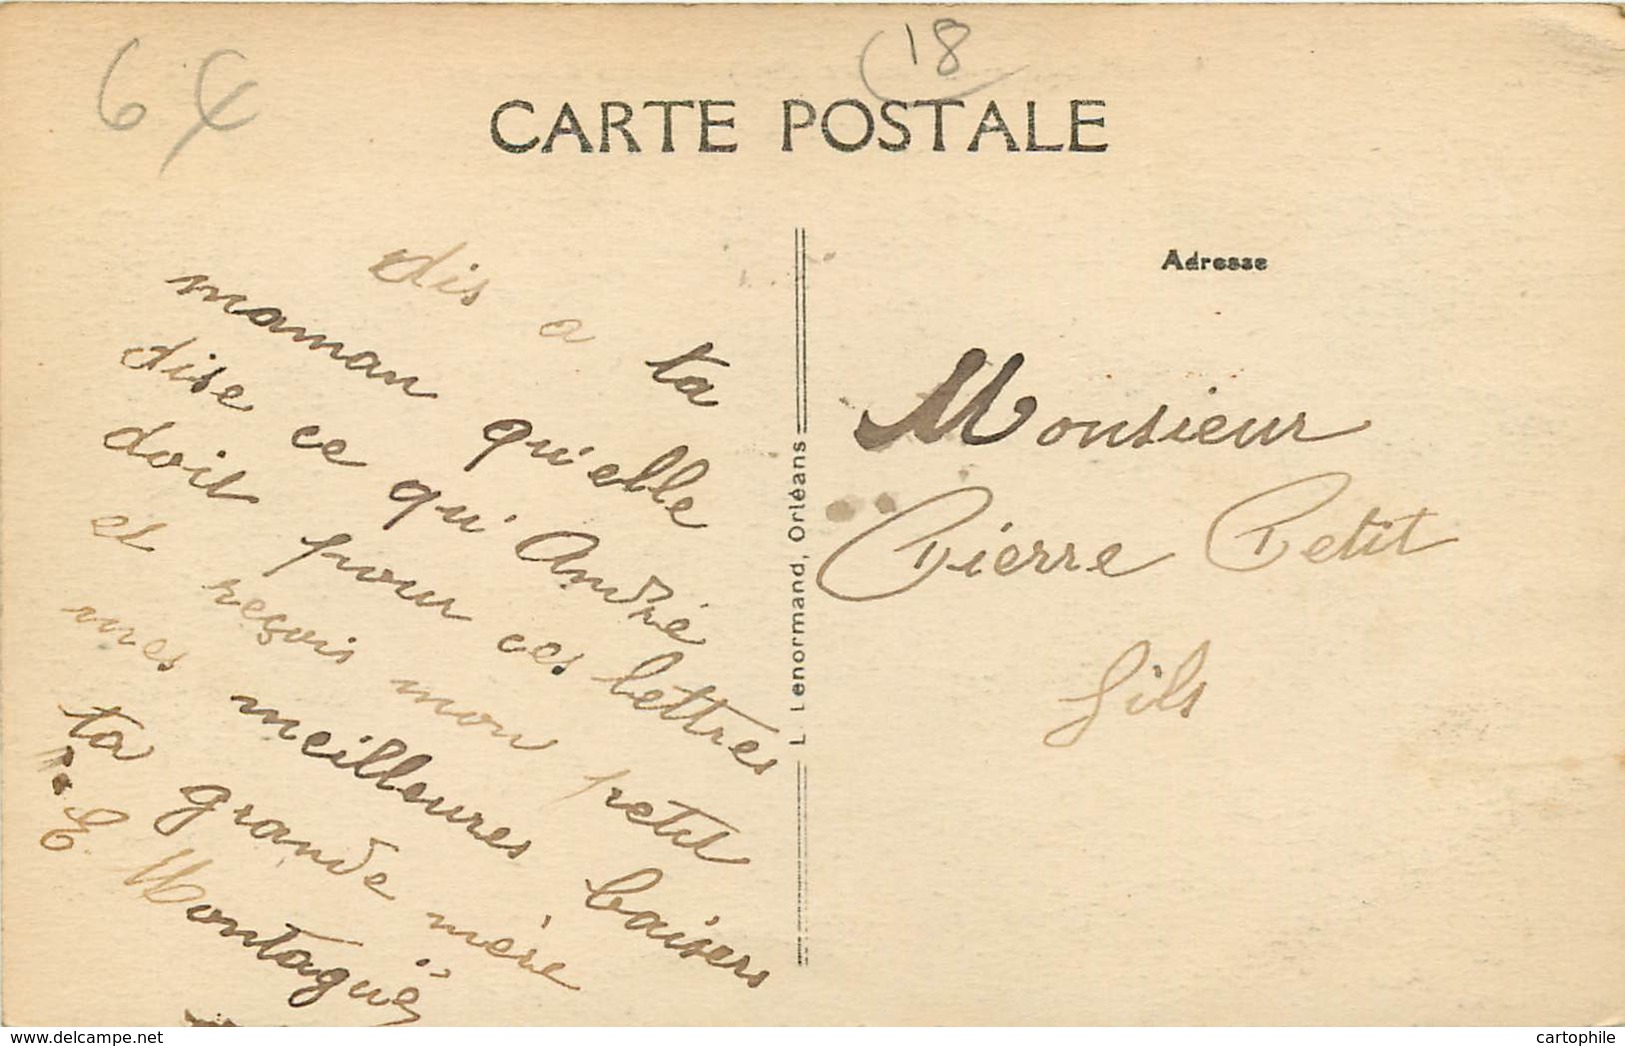 64
18
CARTE POSTALE
Adresse
dis a ta
maman qu'elle
dise ce qu'André
doit pour ces lettres
et reçois mon petit
mes meilleures baisers
ta grande mère
E. Montagué
L. Lenormand, Orléans
Monsieur
Pierre Petit
fils
cartophile